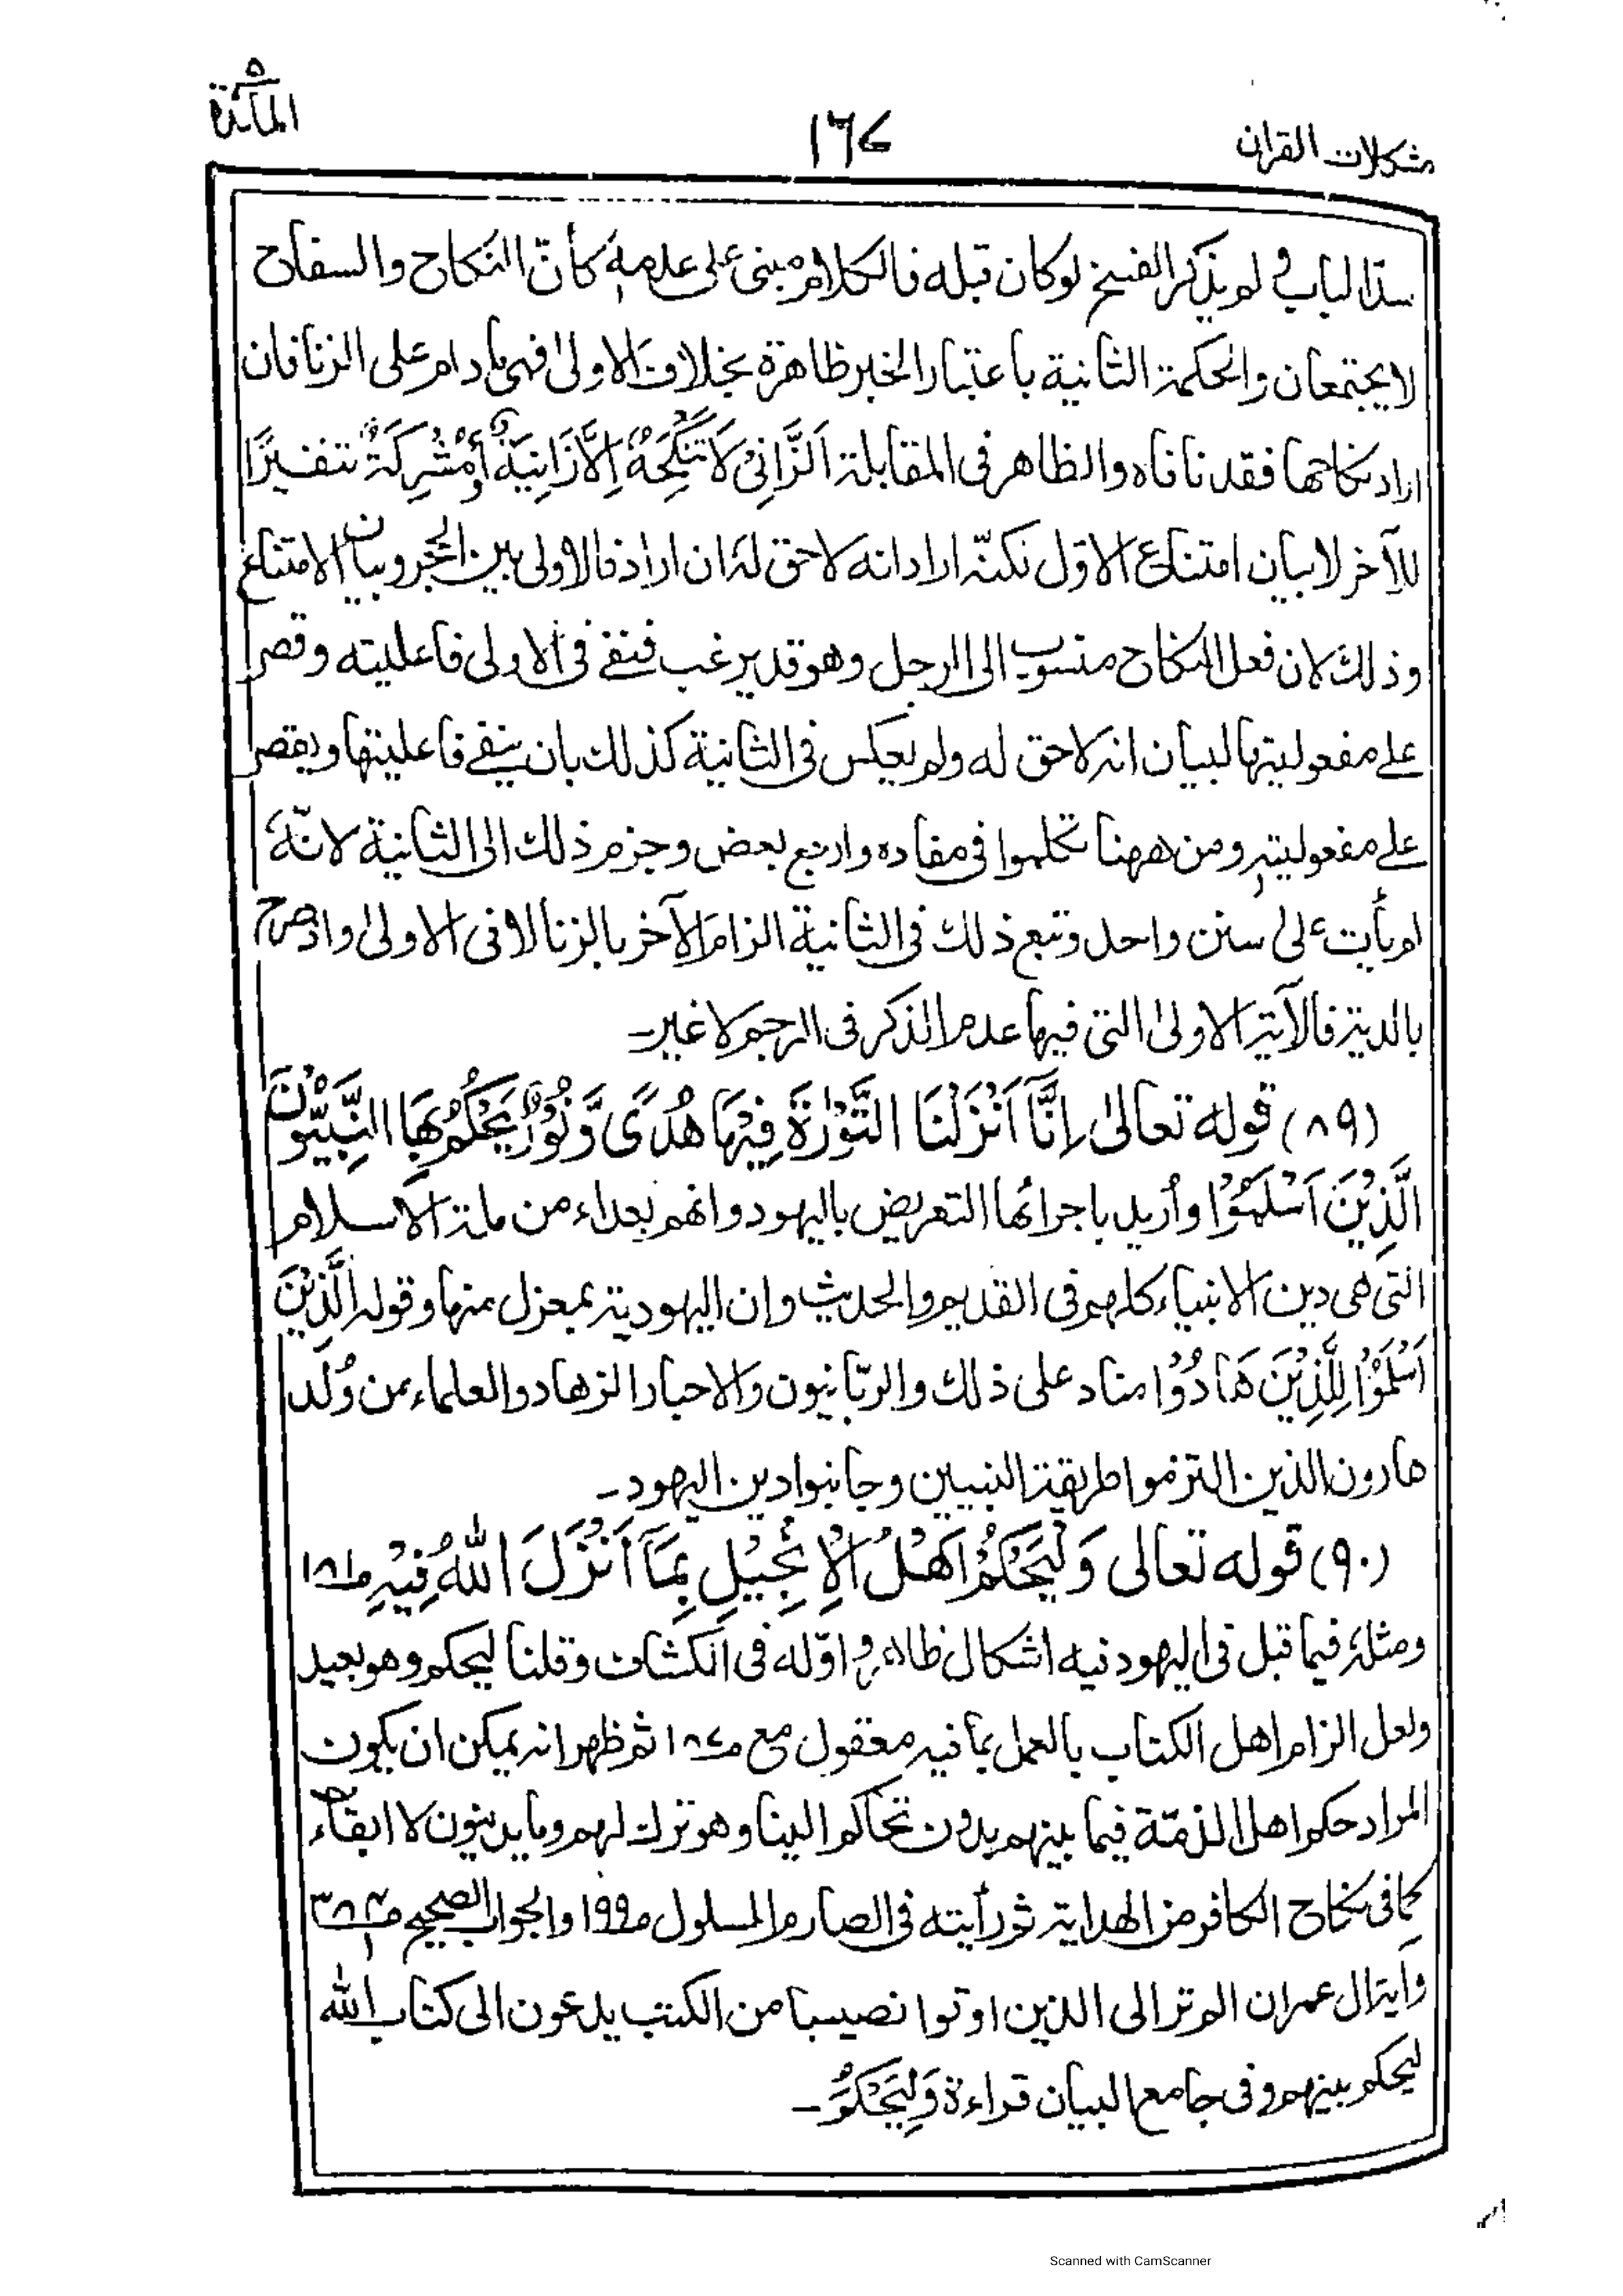 المائدة ٥
١٦٧
مشكلات القران
سدّ الباب ولم يذكر الفسخ لو كان قبله فالكلام مبنى على عدمه كأنّ النكاح والسفاح
لا يجتمعان والحكمة الثانية باعتبار الخبر ظاهرة بخلاف الاولىٰ فهى ما دام على الزنا فان
اراد نكاحها فقد نافاه والظاهر فى المقابلة اَلزَّانِىْ لَا تَنْكِحُهٗ اِلَّا زَانِيَةٌ اَوْ مُشْرِكَةٌ تنفيرًا
للآخر لا بيان امتناع الاوّل نكتة اراد انه لا حق له ان اراد فالاولى بين الحجر وبيان الامتناع
وذلك لان فعل النكاح منسوب الى الرجل وهو قد يرغب فنفے فى الاولى فاعليته وقصر
علے مفعوليتها لبيان انه لا حق له ولم يعكس فى الثانية كذلك بان ينفے فاعليتها ويقصر
علے مفعوليته ومن ههنا تكلموا فى مفاده وارتبع بعض وجزم ذلك الى الثانية لانّهٗ
لم يأت على سنن واحد وتبع ذلك فى الثانية الزام الآخر بالزنا لا فى الاولىٰ واذ صرح
بالدية فالآية الاولىٰ التى فيها عدم الذكر فى الرجم لا غير۔
(٨٩) قوله تعالىٰ اِنَّآ اَنْزَلْنَا التَّوْرٰةَ فِيْهَا هُدًى وَّنُوْرٌ يَحْكُمُ بِهَا النَّبِيُّوْنَ
الَّذِيْنَ اَسْلَمُوْا وأريد باجرائها التعريض باليهود وانهم بعداء من ملة الاسلام
التى هى دين الانبياء كلهم فى القديم والحديث وان اليهودية بمعزل منها وقوله الَّذِيْنَ
اَسْلَمُوْا لِلَّذِيْنَ هَادُوْا مناد على ذلك والربّانيون والاحبار الزهاد والعلماء من وُلد
هارون الذين التزموا طريقة النبيين وجانبوا دين اليهود۔
(٩٠) قوله تعالى وَلْيَحْكُمْ اَهْلُ الْاِنْجِيْلِ بِمَآ اَنْزَلَ اللّٰهُ فِيْهِ صـ١٨١
ومثله فيما قبل فى اليهود فيه اشكال ظاهر واوّله فى الكشاف وقلنا ليحكم وهو بعيد
ولعل الزام اهل الكتاب بالعمل بما فيه معقول مع صـ١٨٧ ثم ظهر انه يمكن ان يكون
المراد حكم اهل الذمّة فيما بينهم بدون تحاكم الينا وهو ترك لهم وما يدينون لا ابقاء
كما فى نكاح الكافر من الهداية ثم رأيته فى الصارم المسلول صـ١٩٩ والجواب الصحيح صـ٣٨٢
وآية ال عمران الم تر الى الذين اوتوا نصيبا من الكتب يدعون الى كتاب الله
ليحكم بينهم وفى جامع البيان قراءة وَلِيَحْكُمَ۔
Scanned with CamScanner